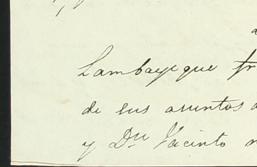 Lambayeque
de sus asuntos
y Dn Jacinto